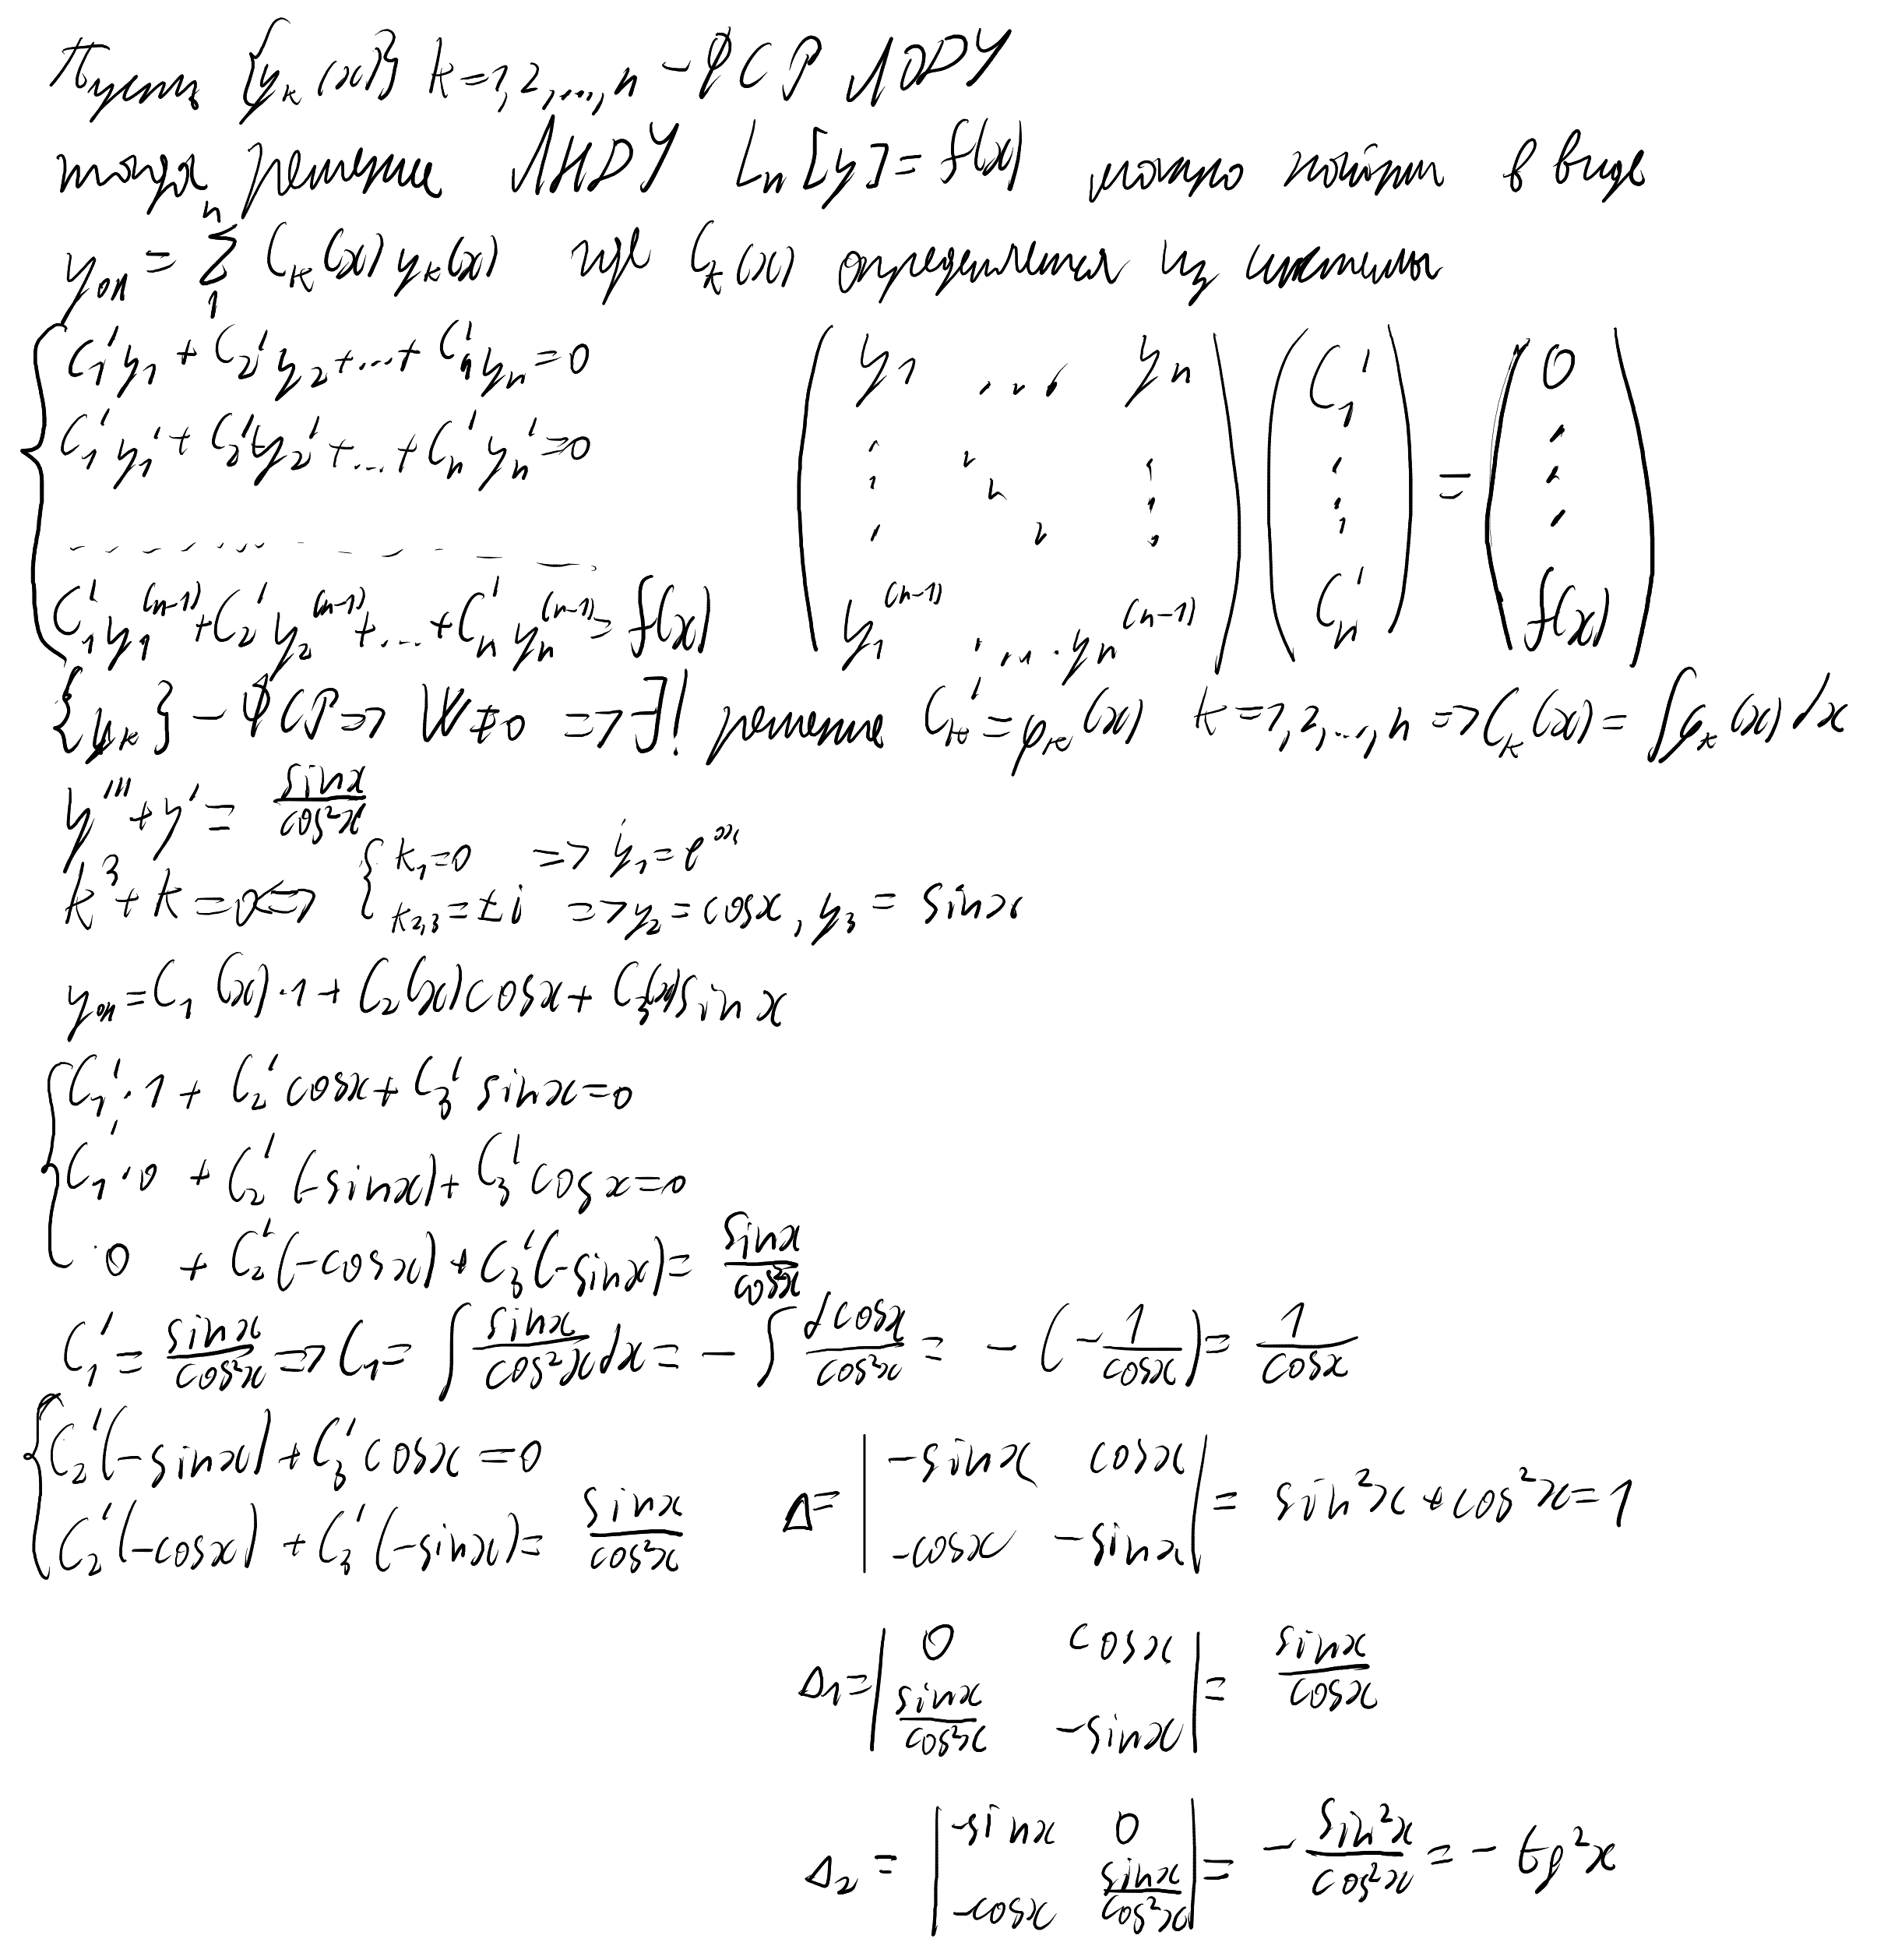 Пусть {yₖ(x)} k=1,2,...,n - ФСР ЛОДУ
тогда решение ЛНДУ Lₙ[y]=f(x) можно найти в виде
yон = Σ₁ⁿ Cₖ(x)yₖ(x) где Cₖ(x) определяется из системы
{ C₁'y₁ + C₂'y₂+...+ Cₙ'yₙ=0
C₁'y₁' + C₂'y₂'+...+Cₙ'yₙ'=0
..............
C₁'y₁⁽ⁿ⁻¹⁾+C₂'y₂⁽ⁿ⁻¹⁾+...+Cₙ'yₙ⁽ⁿ⁻¹⁾=f(x)
(y₁ ... yₙ ⋮ ⋱ ⋮ y₁⁽ⁿ⁻¹⁾ ... yₙ⁽ⁿ⁻¹⁾) (C₁' ⋮ Cₙ') = (0 ⋮ f(x))
{yₖ} - ФСР => W≠0 => ∃! решение Cₖ'=φₖ(x) k=1,2,...,n => Cₖ(x) = ∫φₖ(x)dx
y'''+y' = sinx/cos²x
k³+k=0 <=> { k₁=0 => y₁=e⁰ˣ
k₂,₃=±i => y₂=cosx, y₃ = sinx
yон=C₁(x)·1+C₂(x)cosx+C₃(x)sinx
{ C₁'·1 + C₂'cosx+C₃' sinx=0
C₁'·0 + C₂'(-sinx)+C₃'cosx=0
0 + C₂'(-cosx)+C₃'(-sinx)= sinx/cos²x
C₁' = sinx/cos²x => C₁= ∫ sinx/cos²x dx = - ∫ dcosx/cos²x = - (-1/cosx) = 1/cosx
{ C₂'(-sinx)+C₃'cosx=0
C₂'(-cosx) + C₃'(-sinx)= sinx/cos²x
Δ= |-sinx cosx -cosx -sinx| = sin²x+cos²x=1
Δ₁= |0 cosx sinx/cos²x -sinx| = sinx/cosx
Δ₂ = |-sinx 0 -cosx sinx/cos²x| = - sin²x/cos²x = - tg²x